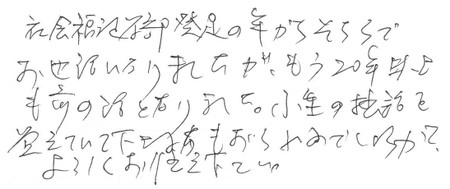 社会福祉学部発足の年からそちらで
お世話になりましたが、もう20年以上
も前の話となりました。小生の拙話を
覚えていて下さる方もおられるのでしょうか。
よろしくお伝え下さい。